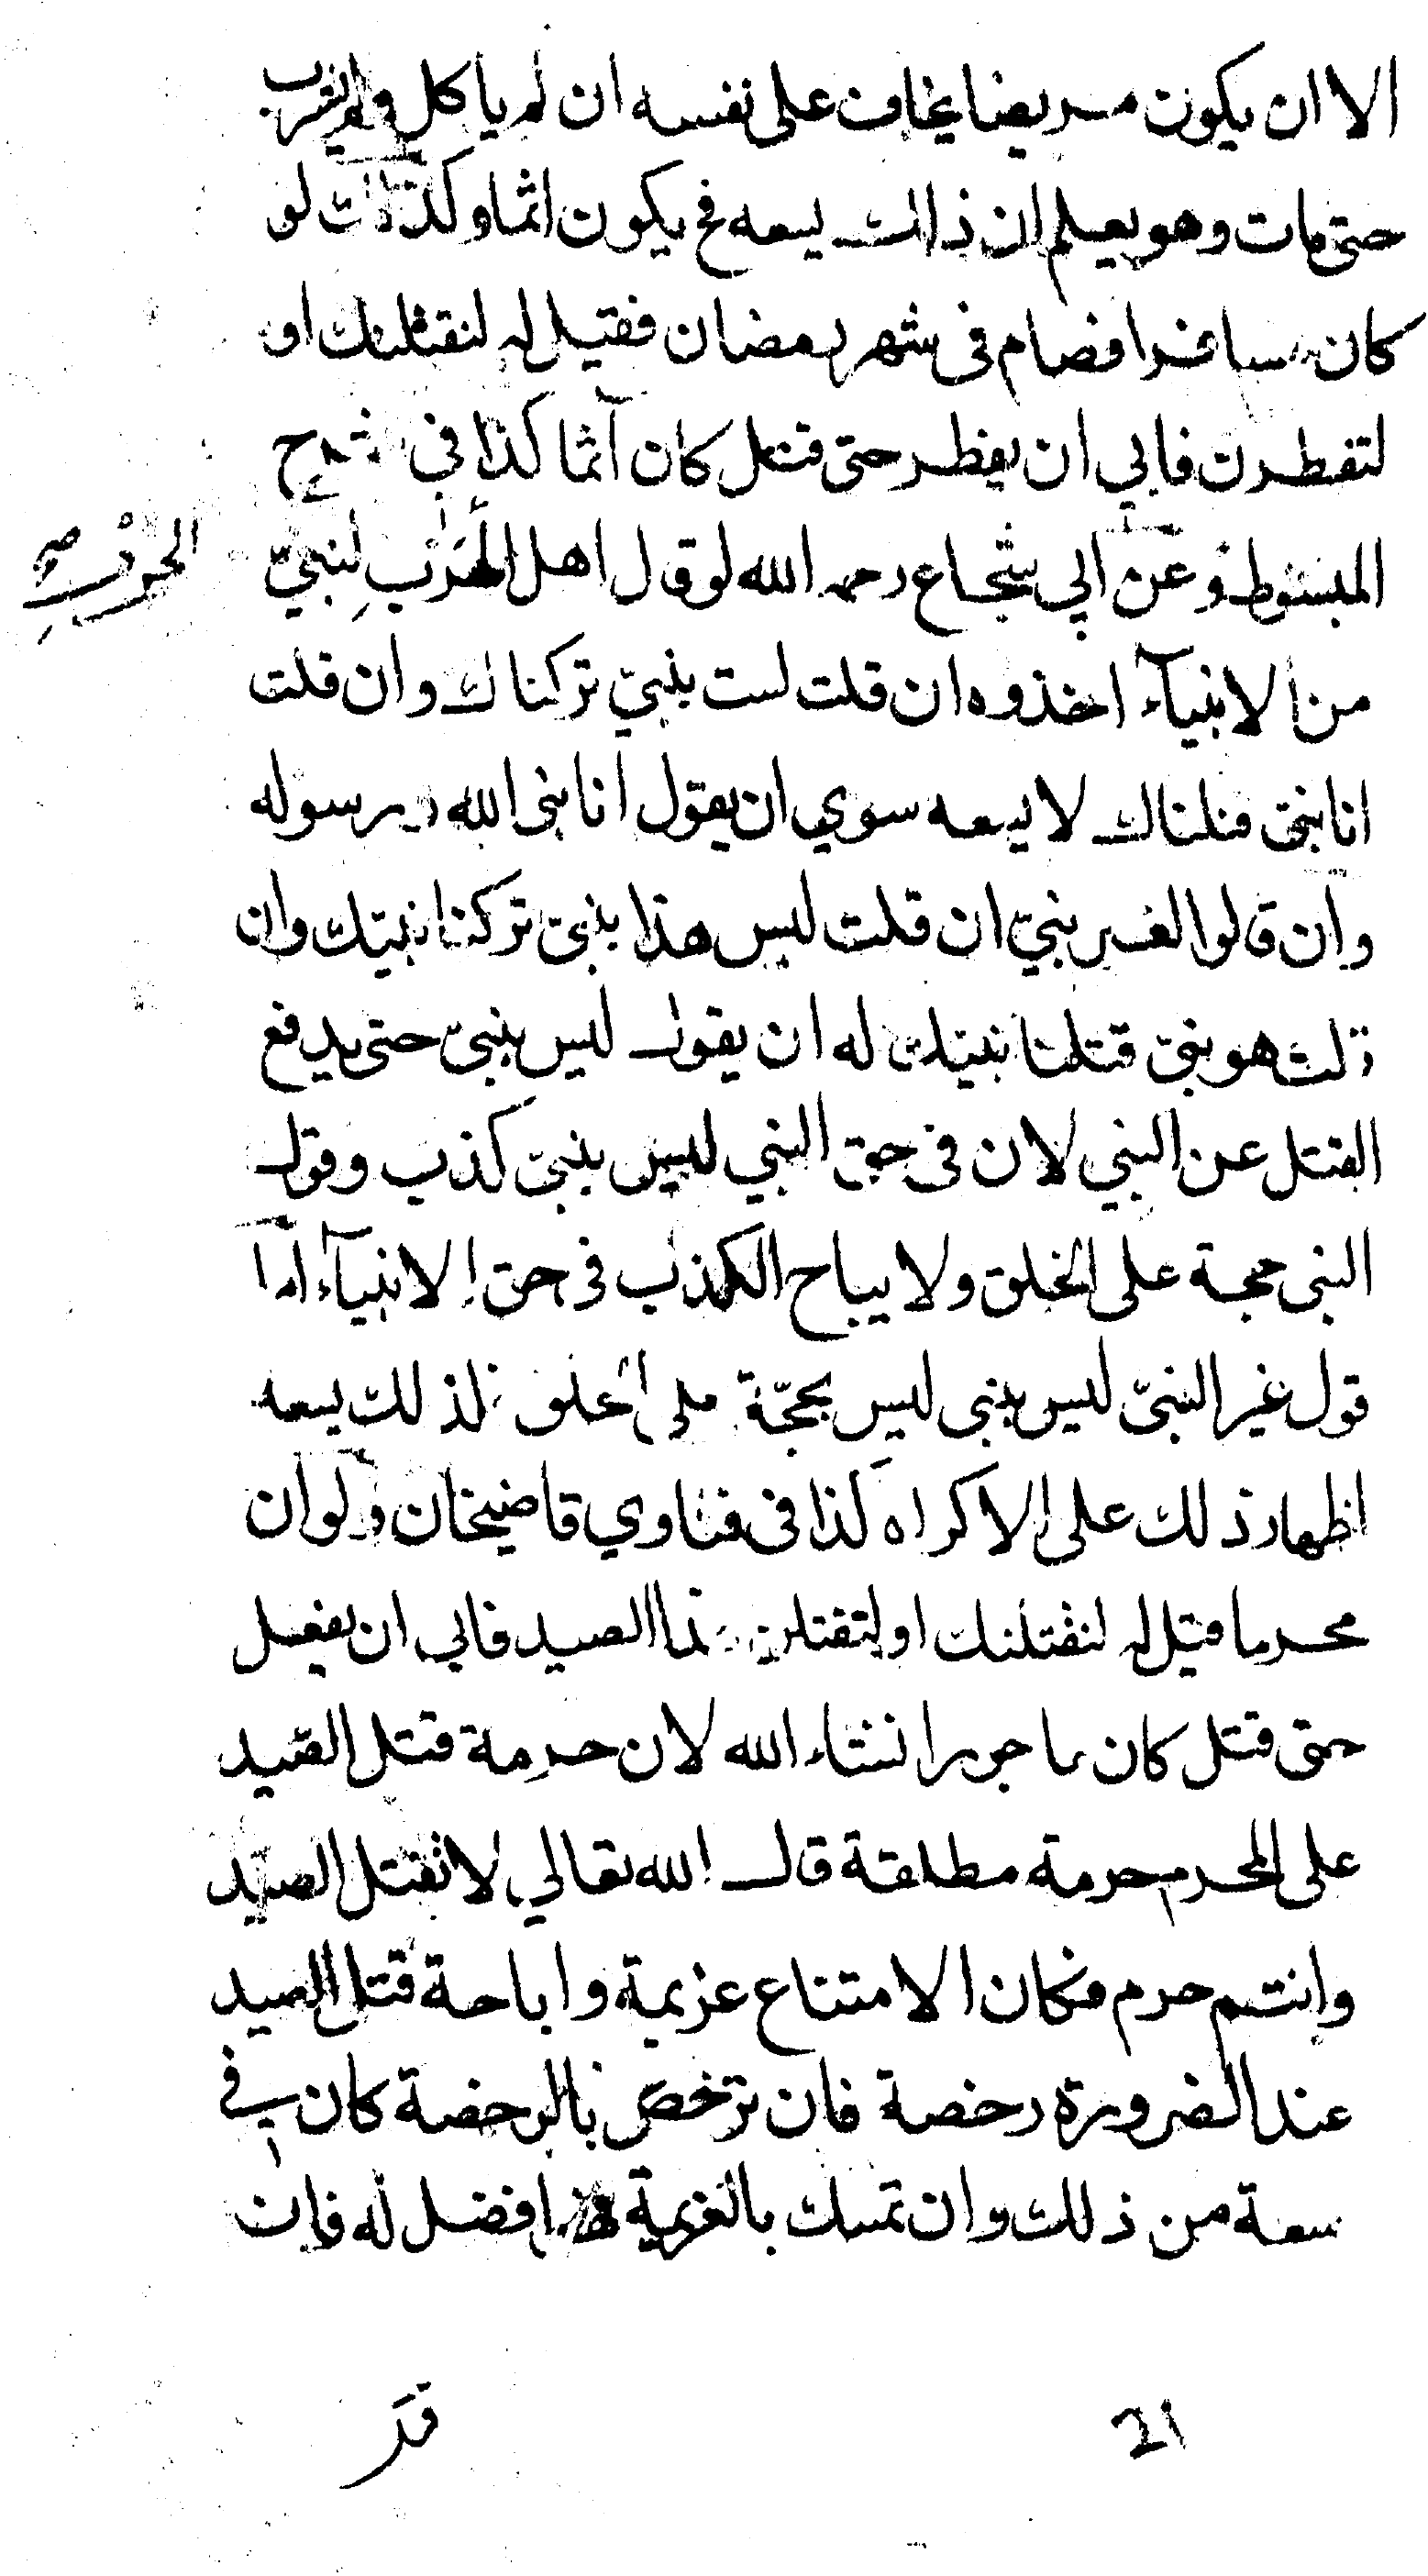 الا ان يكون مريضا يخاف على نفسه ان لم ياكل ولم يشرب
حتى مات وهو يعلم ان ذلك يسعه فح يكون اثما وكذلك لو
كان مسافرا فصام في شهر رمضان فقيل له لنقتلنك او
لتفطرن فابي ان يفطر حتى قتل كان آثما كذا في شرح
المبسوط وعن ابي شجاع رحمه الله لو قال اهل الحرب لنبيّ
الحرب صح
من الانبيآء اخذوه ان قلت لست بنبيّ تركناك وان قلت
انا نبيّ قتلناك لا يسعه سوي ان يقول انا نبي الله ورسوله
وان قالوا لغير نبيّ ان قلت ليس هذا بنبيّ تركنا نبيك وان
قلت هو نبيّ قتلنا نبيك له ان يقول ليس بنبيّ حتى يدفع
القتل عن النبي لان في حق النبي ليس بنبيّ كذب وقول
النبي حجة على الخلق ولا يباح الكذب في حق الانبيآء امّا
قول غير النبيّ ليس بنبي ليس بحجّة على الخلق فلذلك يسعه
اظهار ذلك على الاكراه كذا في فتاوي قاضيخان ولو ان
محرما قيل له لنقتلنك او لتقتلن هذا الصيد فابي ان يفعل
حتى قتل كان ماجورا انشاء الله لان حرمة قتل الصّيد
على المحرم حرمة مطلقة قال الله تعالي لا تقتل الصيد
وانتم حرم فكان الامتناع عزيمة واباحة قتل الصيد
عند الضرورة رخصة فان ترخص بالرخصة كان في
سعة من ذلك وان تمسك بالعزيمة افضل له فان
قد
21